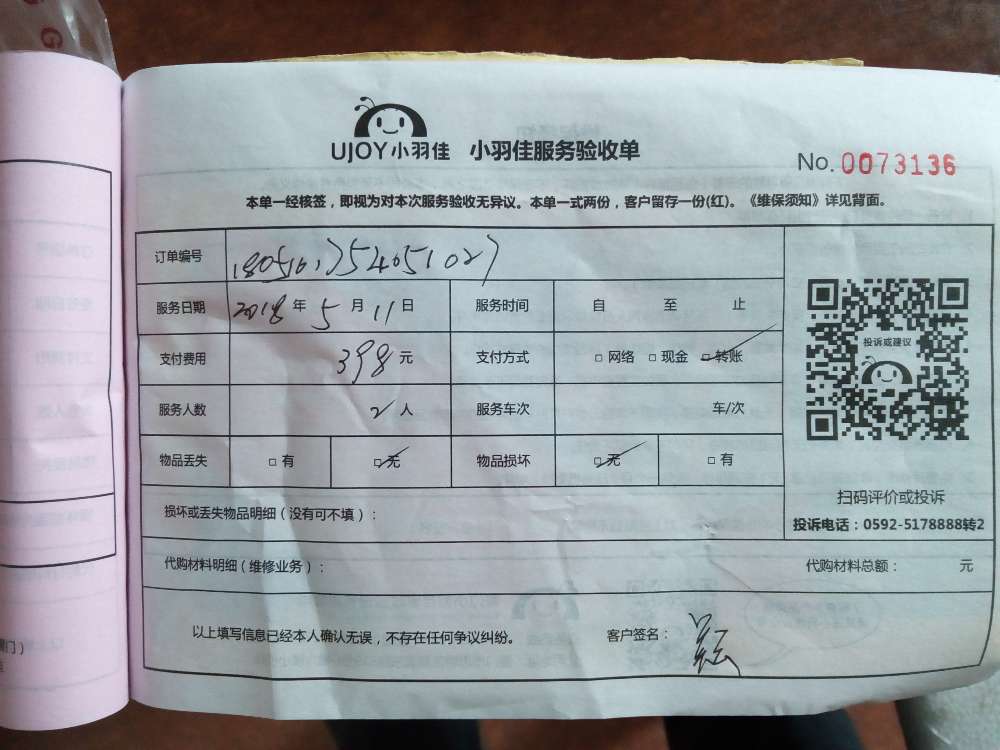 UJOY小羽佳 小羽佳服务验收单
No. 0073136
本单一经核签，即视为对本次服务验收无异议。本单一式两份，客户留存一份(红)。《维保须知》详见背面。
订单编号 1805161754051027
服务日期 2018 年 5 月 11 日 服务时间 自 至 止
支付费用 398 元 支付方式 □ 网络 □ 现金 □ 转账
服务人数 2 人 服务车次 车/次
物品丢失 □ 有 □ 无 物品损坏 □ 无 □ 有
投诉或建议
扫码评价或投诉
投诉电话：0592-5178888转2
损坏或丢失物品明细（没有可不填）：
代购材料明细（维修业务）： 代购材料总额： 元
以上填写信息已经本人确认无误，不存在任何争议纠纷。 客户签名：